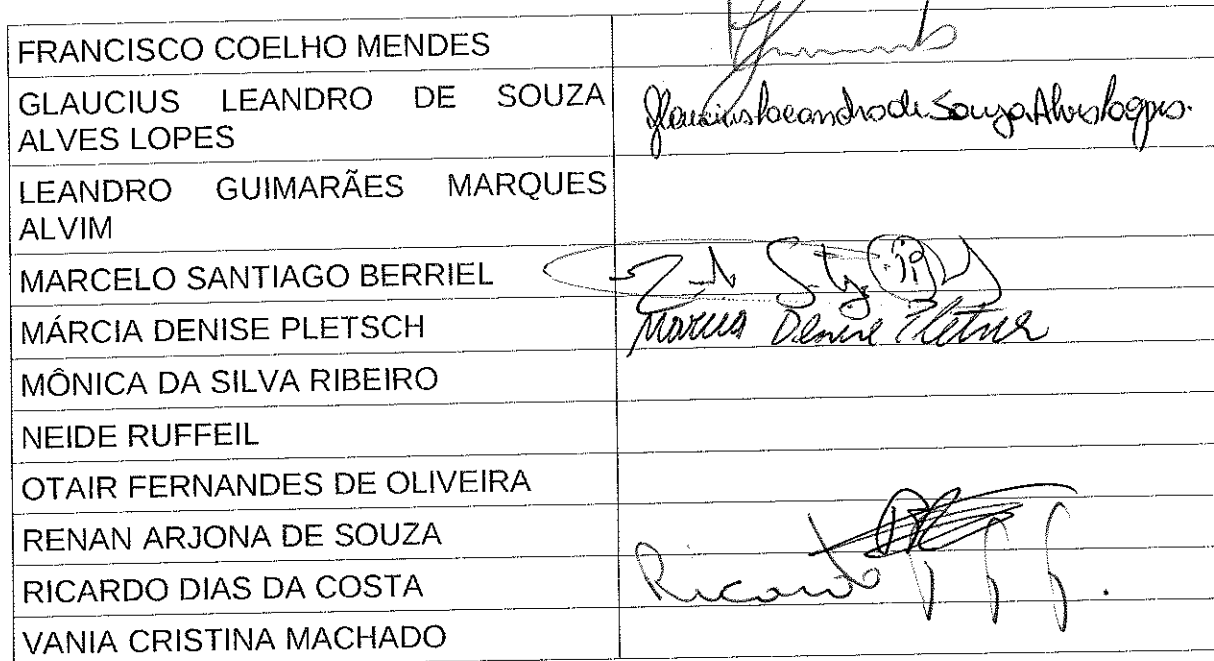 FRANCISCO COELHO MENDES
GLAUCIUS LEANDRO DE SOUZA Glaucius Leandro de Souza Alves Lopes.
ALVES LOPES
LEANDRO GUIMARÃES MARQUES
ALVIM
MARCELO SANTIAGO BERRIEL
MÁRCIA DENISE PLETSCH Márcia Denise Pletsch
MÔNICA DA SILVA RIBEIRO
NEIDE RUFFEIL
OTAIR FERNANDES DE OLIVEIRA
RENAN ARJONA DE SOUZA
RICARDO DIAS DA COSTA Ricardo
VANIA CRISTINA MACHADO